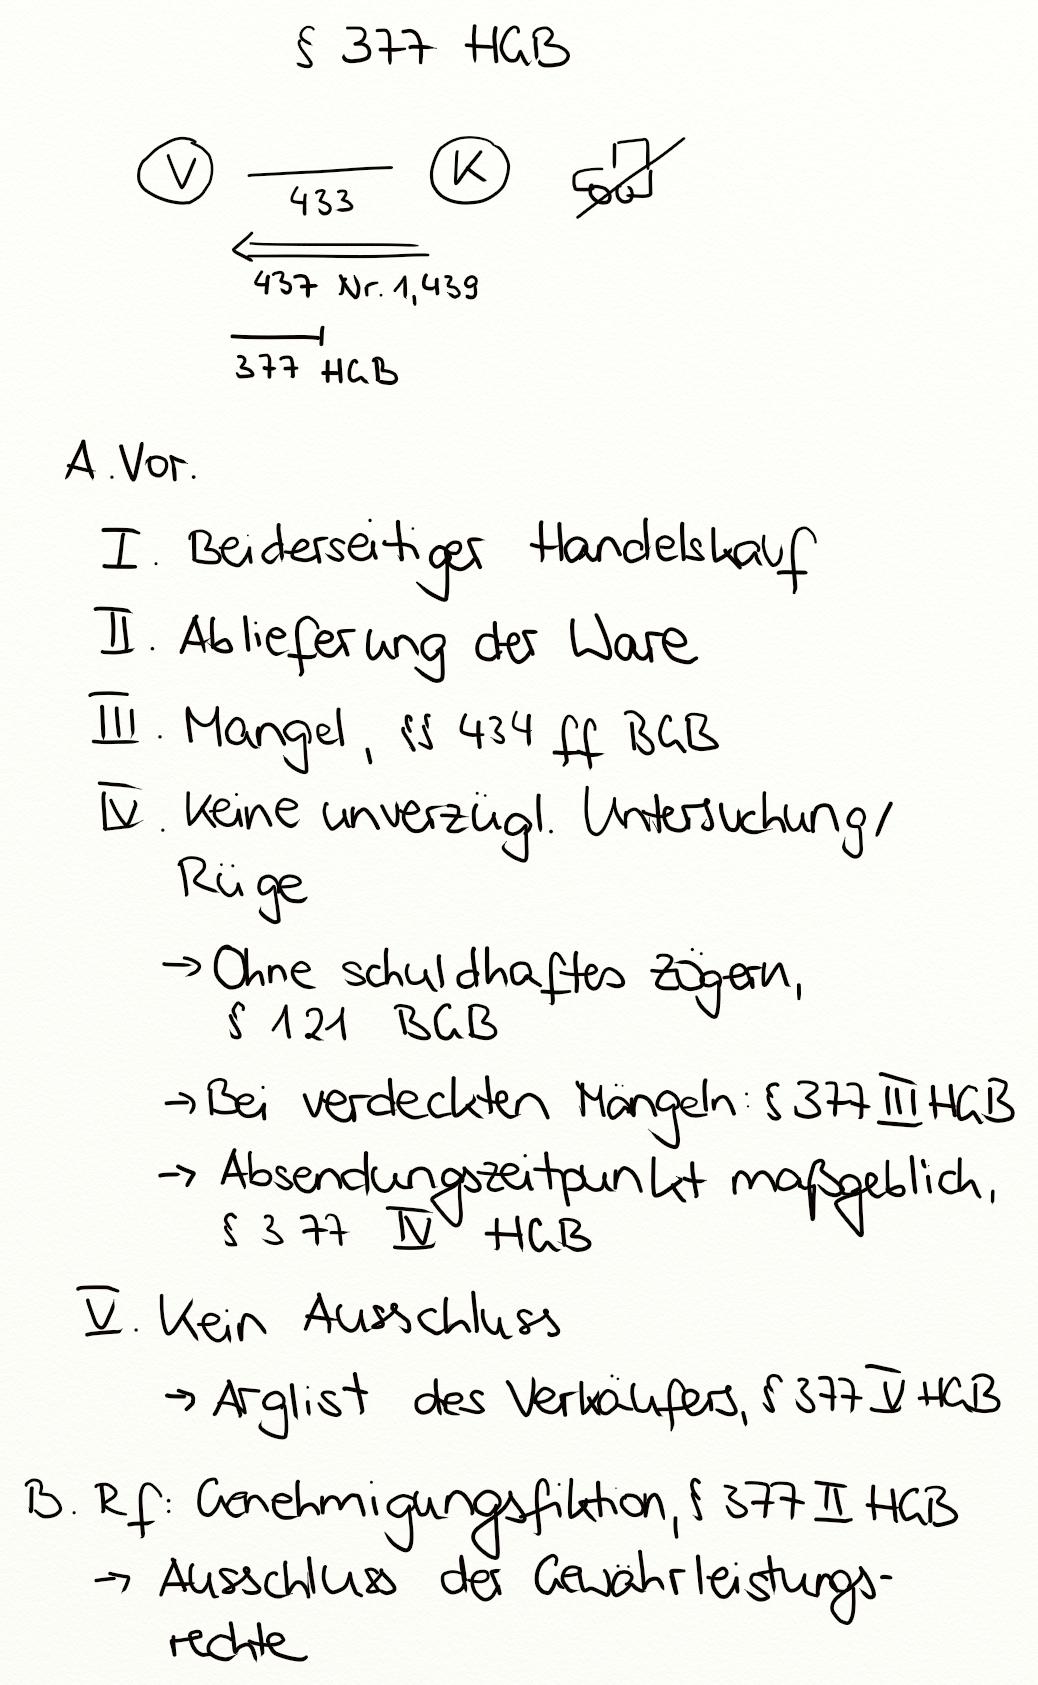 § 377 HGB
V K
433
437 Nr. 1, 439
377 HGB
A. Vor.
I. Beiderseitiger Handelskauf
II. Ablieferung der Ware
III. Mangel, §§ 434 ff BGB
IV. Keine unverzügl. Untersuchung/
Rüge
→ Ohne schuldhaftes zögern,
§ 121 BGB
→ Bei verdeckten Mängeln: § 377 III HGB
→ Absendungszeitpunkt maßgeblich,
§ 377 IV HGB
V. Kein Ausschluss
→ Arglist des Verkäufers, § 377 V HGB
B. Rf: Genehmigungsfiktion, § 377 II HGB
→ Ausschluss der Gewährleistungs-
rechte